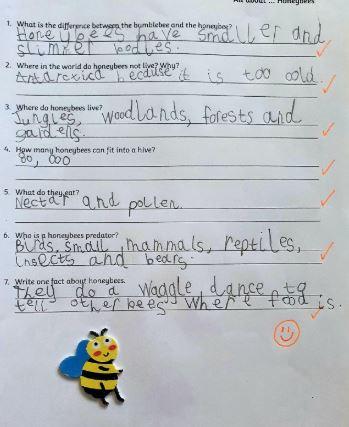 All about ... Honeybees
1. What is the difference between the bumblebee and the honeybee?
Honeybees have smaller and
slimmer bodies.
2. Where in the world do honeybees not live? Why?
Antarxica because it is too cold.
3. Where do honeybees live?
Jungles, woodlands, forests and
gardens.
4. How many honeybees can fit into a hive?
80,000
5. What do they eat?
Nectar and pollen.
6. Who is a honeybees predator?
Birds, small mammals, reptiles,
insects and bears.
7. Write one fact about honeybees.
They do a waggle dance to
tell other bees where food is.